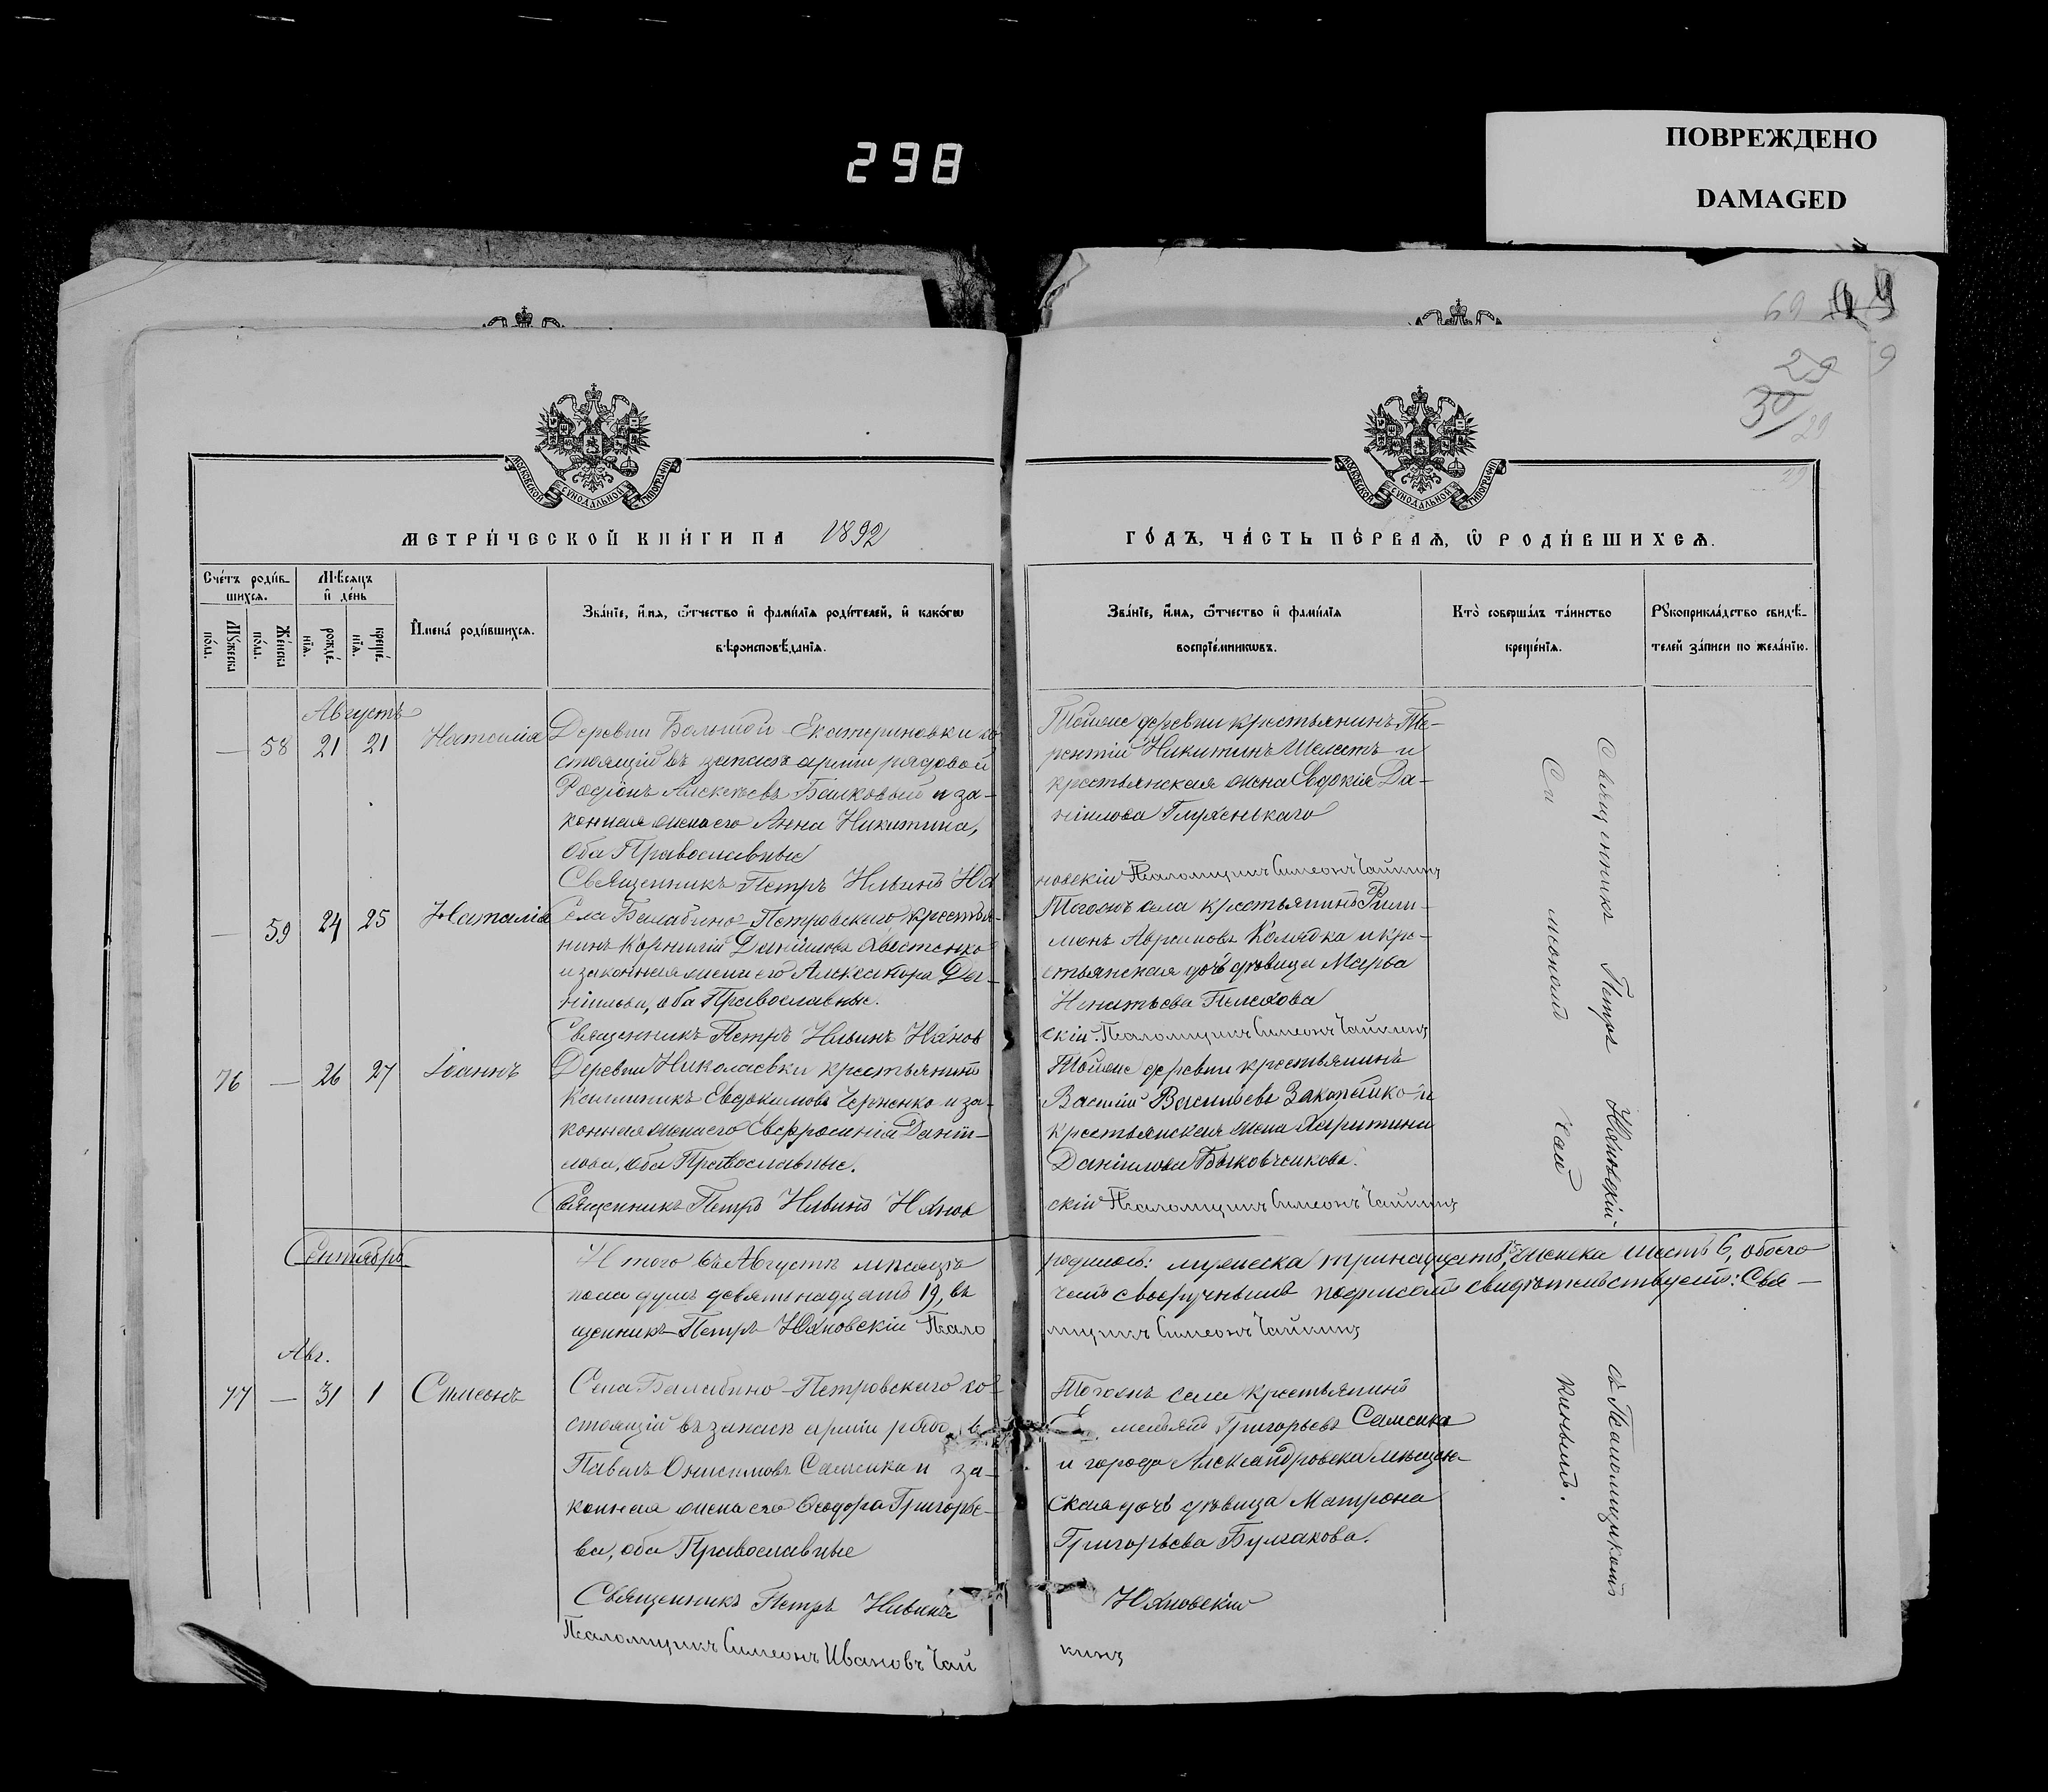 298
ПОВРЕЖДЕНО
DAMAGED
69
29
30
29
МОСКОВСКОЙ СѴНОДАЛЬНОЙ ТИПОГРАФІИ
МОСКОВСКОЙ СѴНОДАЛЬНОЙ ТИПОГРАФІИ
МЕТРИЧЕСКОЙ КНИГИ НА 1892
ГОДЪ, ЧАСТЬ ПЕРВАЯ, Ѡ РОДИВШИХСЯ.
Счетъ родившихся.
Мужеска пола.
Женска пола.
Мѣсяцъ и день
рожденія.
крещенія.
Имена родившихся.
Званіе, имя, отчество и фамилія родителей, и какогѡ вѣроисповѣданія.
Званіе, имя, отчество и фамилія воспріемникѡвъ.
Кто совершалъ таинство крещенія.
Рукоприкладство свидѣтелей записи по желанію.
Августъ
— 58 21 21 Наталія
Деревни Большой-Екатериновки со-
стоящій въ запасѣ арміи рядовой
Родіонъ Алексѣевъ Башковый и за-
конная жена его Анна Никитина,
оба Православные
Священникъ Петръ Ильинъ Юх
Тойже деревни крестьянинъ Те-
рентій Никитинъ Шелестъ и
крестьянская жена Евдокія Да-
ніилова Глухенькаго
новскій Псаломщикъ Симеонъ Чайкинъ
— 59 24 25 Наталія
Села Балабино-Петровскаго крестья-
нинъ Корнилій Даніиловъ
и законная жена его Александра Да-
ніилова, оба Православные.
Священникъ Петръ Ильинъ Юханов
Тогожъ села крестьянинъ Фили-
монъ Аврамовъ Колядка и кре-
стьянская дочь дѣвица Марѳа
Игнатьева Пелехова
скій. Псаломщикъ Симеонъ Чайкинъ
76 — 26 27 Іоаннъ
Деревни Николаевки крестьянинъ
Каллиникъ Евдокимовъ Черненко и за-
конная жена его Евфросинія Даніи-
лова, оба Православные.
Священникъ Петръ Ильинъ Юханов
Тойже деревни крестьянинъ
Василій Васильевъ Закопайко и
крестьянская жена Харитина
Даніилова Быковченкова.
скій Псаломщикъ Симеонъ Чайкинъ
Священникъ Петръ Юхановскій
съ Псаломщикомъ
Си меономъ Чай
кинымъ.
Сентябрь
Итого въ Августѣ мѣсяцѣ
родилось: мужеска тринадцать 13, женска шесть 6, обоего
пола душъ девятьнадцать 19, въ
чемъ своеручнымъ подписомъ свидѣтельствуемъ: Свя-
щенникъ Петръ Юхановскій Псало
мщикъ Симеонъ Чайкинъ
Авг.
77 — 31 1 Симеонъ
Села Балабино-Петровскаго со-
стоящій въ запасѣ арміи рядов
Павелъ Онисимовъ Самсика и за-
конная жена его Ѳеодора Григорье-
ва, оба Православные
Священникъ Петръ Ильинъ
Псаломщикъ Симеонъ Ивановъ Чай
Тогожъ села крестьянинъ
Емельянъ Григорьевъ Самсика
и города Александровска мѣщан-
ская дочь дѣвица Матрона
Григорьева Булгакова.
Юхановскій
кинъ